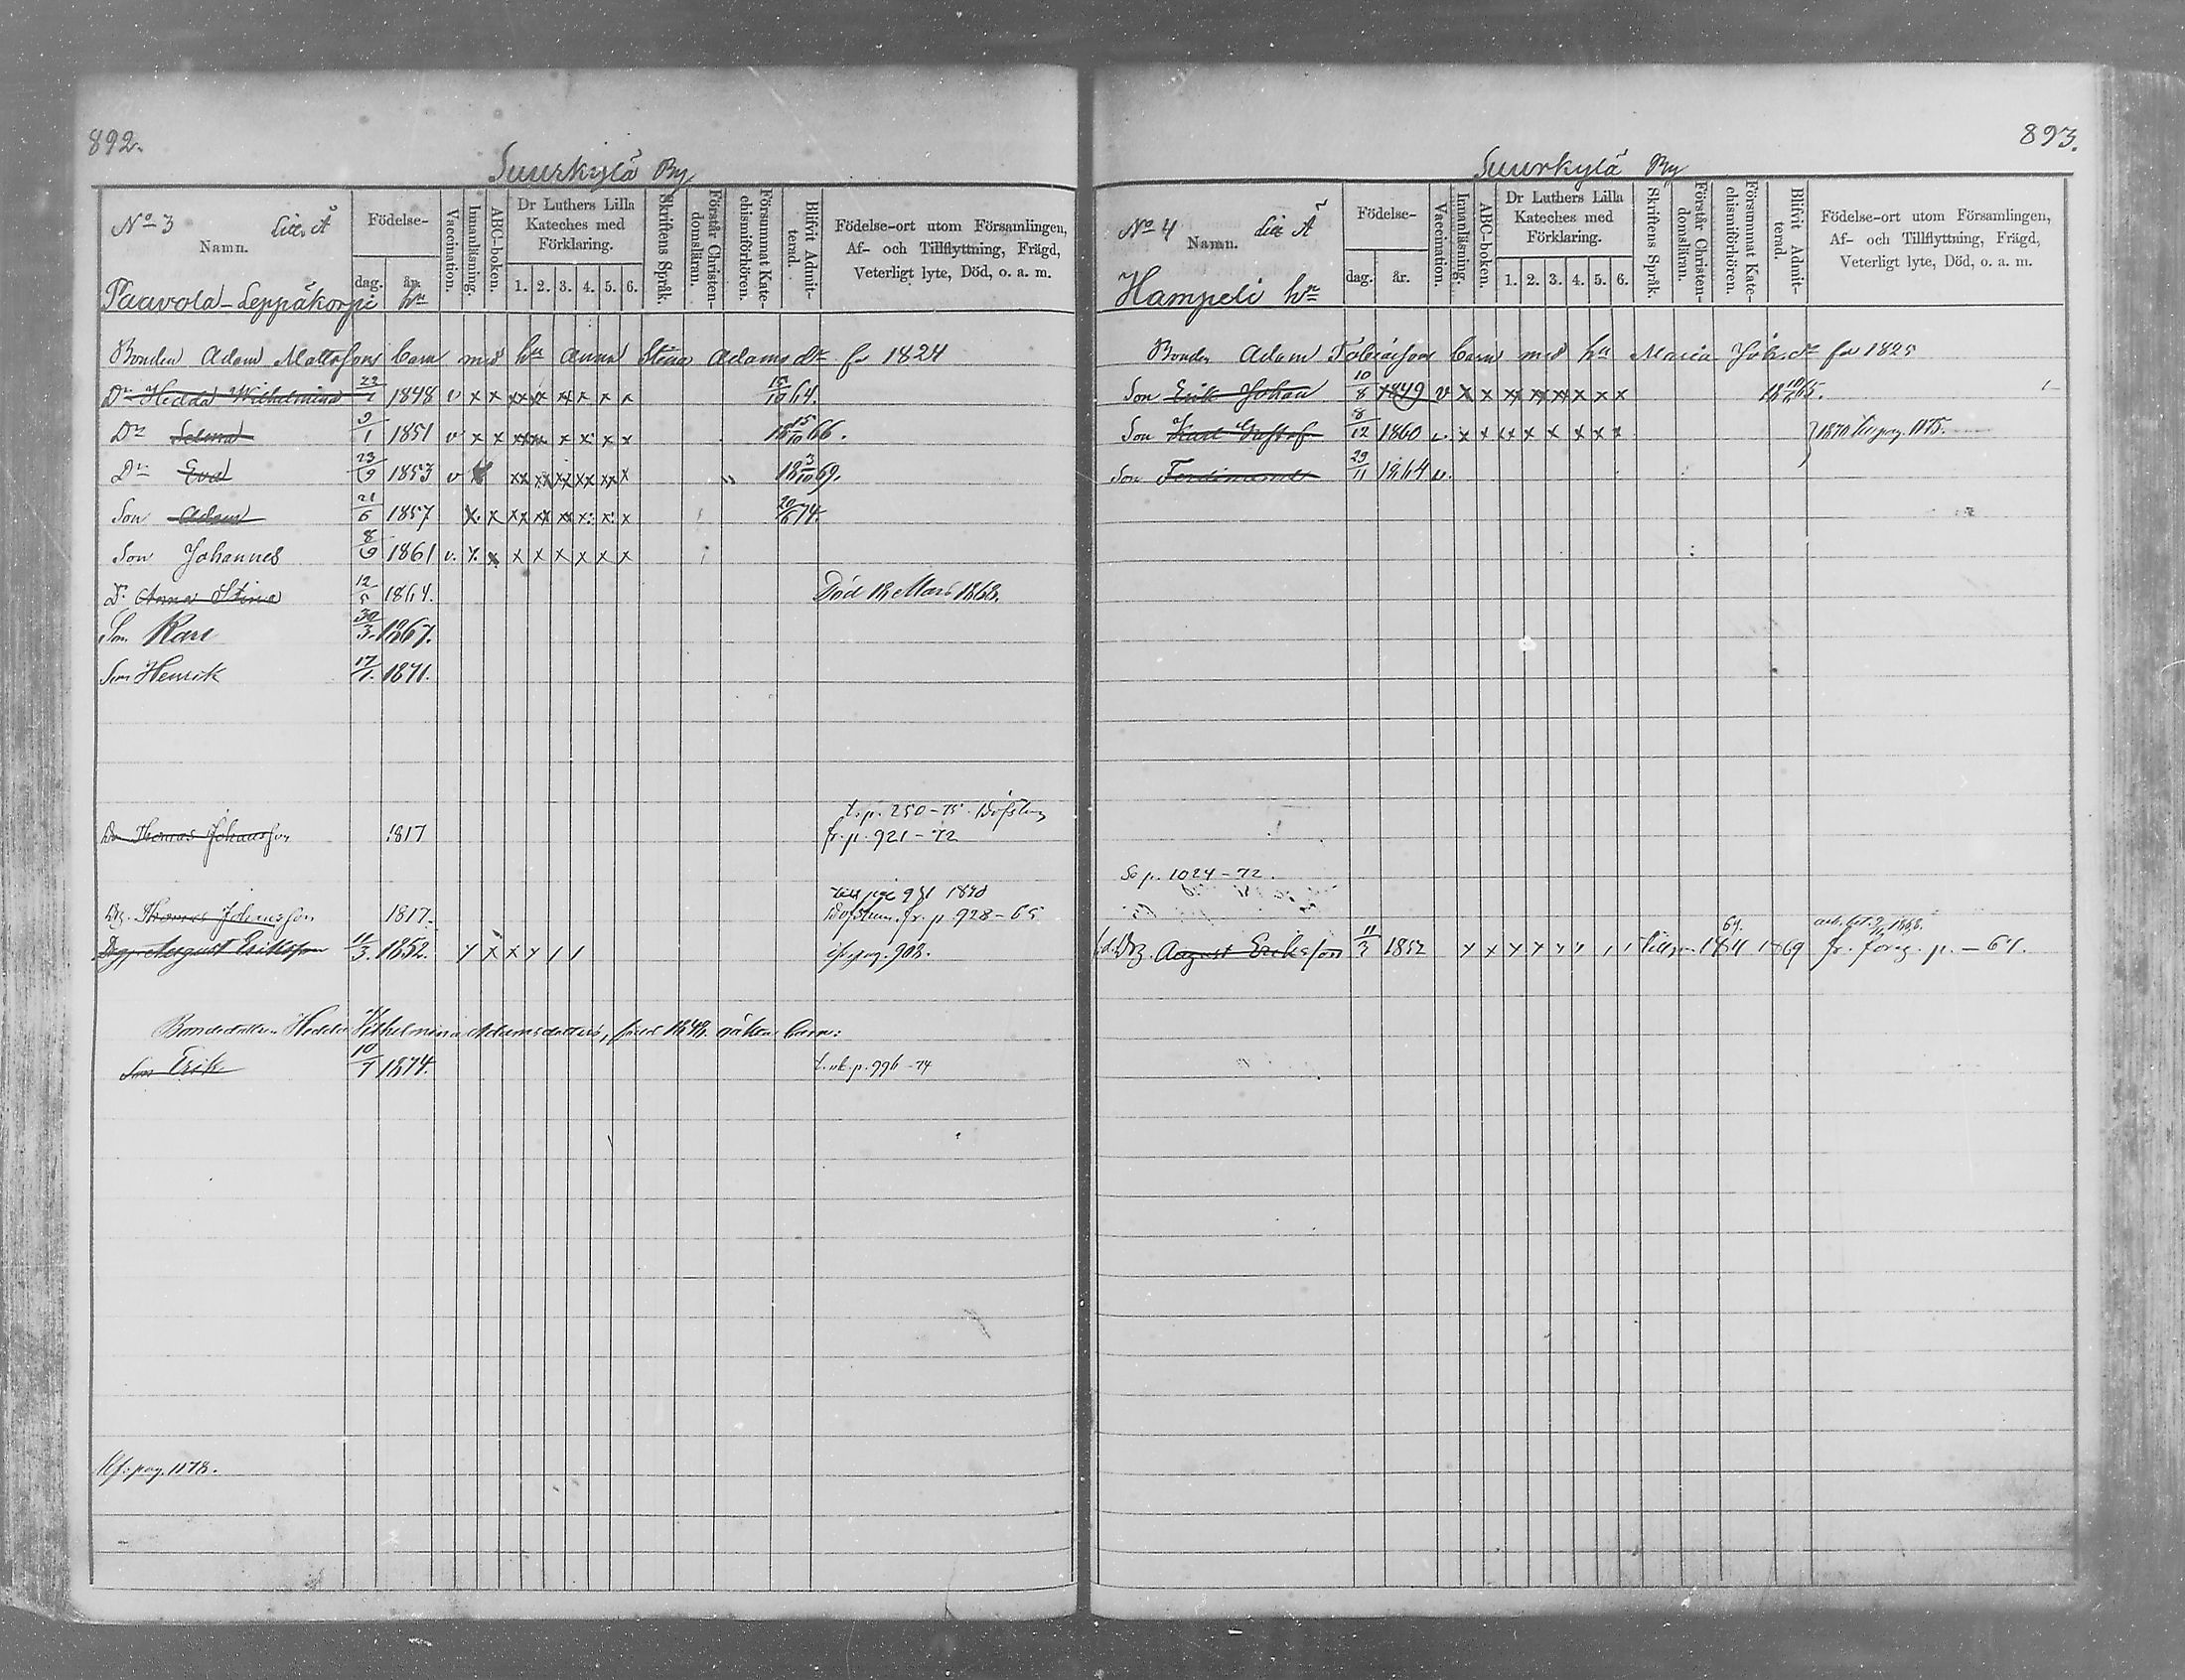 892.
Suurkylä By
No 3 Litt. A
Namn.
Födelse-
dag. år.
Vaccination.
Innanläsning.
ABC-boken.
Dr Luthers Lilla Kateches med Förklaring.
1. 2. 3. 4. 5. 6.
Skriftens Språk.
Förstår Christendomsläran.
Försummat Katechismiförhören.
Blifvit Admitterad.
Födelse-ort utom Församlingen,
Af- och Tillflyttning, Frägd,
Veterligt lyte, Död, o. a. m.
Paavola-Leppäkorpi hn
Bonden Adam Mattssons barn med hu Anna Stina Adams dr fö 1824
Dr Hedda Wilhelmina 1848 v x x xx x xx x x x 15/10 64.
Dr Selma 9/1 1851 v x x xx xx x x x x 18 15/10 66.
Dr Eva 23/9 1853 v xx xx xx xx xx x 18 3/10 69.
Son Adam 21/6 1857 x x xx xx xx x x x 20/6 74.
Son Johannes 8/9 1861 v. x x x x x x x x
Dr Anna Stina 12/5 1864. Död 18 Mars 1868.
Son Karl 30/3 1867.
Son Henrik 17/1 1871.
t. p. 250-75
Thomas Johansson 1817 fr. p. 921-72
Drg. Thomas Johansson 1817. fr. p. 928-65
Drg. August Eriksson 11/3 1852. y x x y / / pag. 908.
Bondedottren Hedda Wilhelmina Adamsdotters, född 1848. oäkta barn:
Son Erik 10/7 1874. t. p. 996-74
pag. 1178.
893.
Suurkylä By
No 4 Litt A
Namn.
Födelse-
dag. år.
Vaccination.
Innanläsning.
ABC-boken.
Dr Luthers Lilla Kateches med Förklaring.
1. 2. 3. 4. 5. 6.
Skriftens Språk.
Förstår Christendomsläran.
Försummat Katechismiförhören.
Blifvit Admitterad.
Födelse-ort utom Församlingen,
Af- och Tillflyttning, Frägd,
Veterligt lyte, Död, o. a. m.
Hampeli hn
Bonden Adam Tobiassons barn med hu Maria Joh. dr fö 1825
Son Erik Johan 10/8 1849 v x x xx xx x x x x 65.
Son Karl Gustaf 8/12 1860 v. x x x x x x x x 1870 pag. 1175.
Son Ferdinand 29/11 1864 v.
p. 1024-72.
Drg. August Eriksson 11/3 1852 y x y y y y / / 1869 fr. föreg. p. - 67.